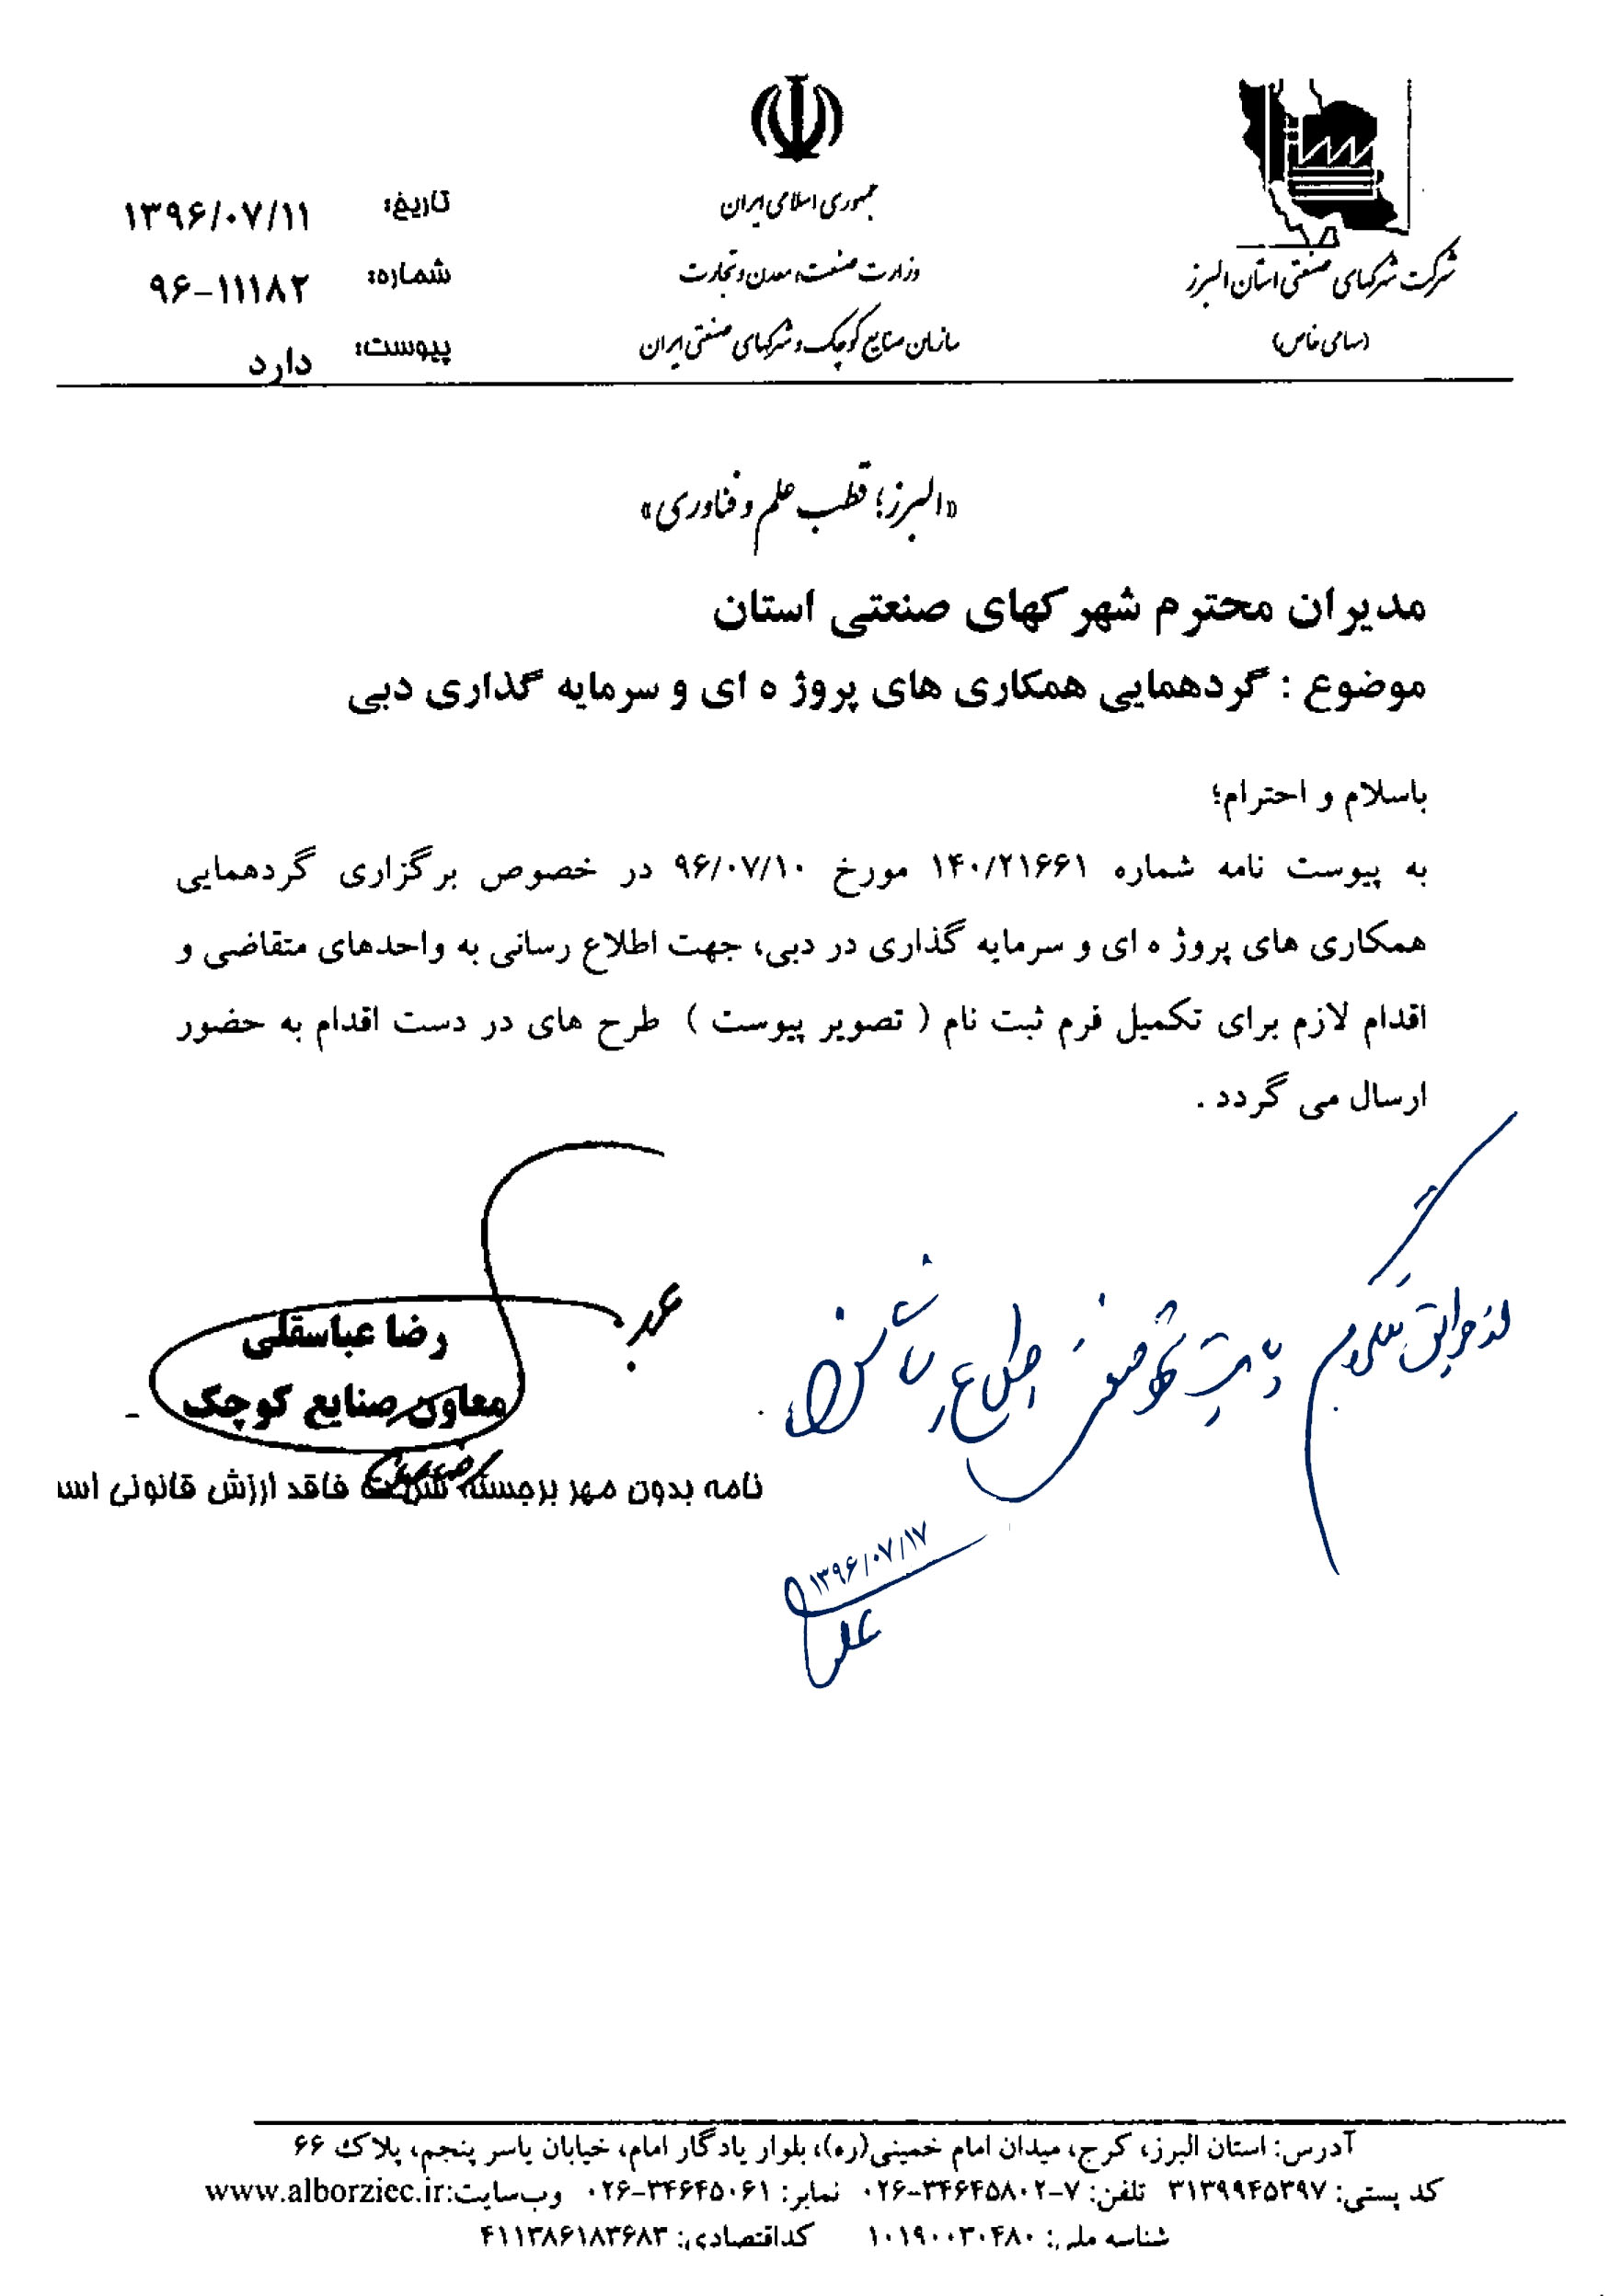 شرکت شهرکهای صنعتی استان البرز
(سهامی خاص)
جمهوری اسلامی ایران
وزارت صنعت، معدن و تجارت
سازمان صنایع کوچک و شهرکهای صنعتی ایران
تاریخ: ۱۳۹۶/۰۷/۱۱
شماره: ۹۶-۱۱۱۸۲
پیوست: دارد
«البرز؛ قطب علم و فناوری»
مدیران محترم شهرکهای صنعتی استان
موضوع : گردهمایی همکاری های پروژه ای و سرمایه گذاری دبی
باسلام و احترام؛
به پیوست نامه شماره ۱۴۰/۲۱۶۶۱ مورخ ۹۶/۰۷/۱۰ در خصوص برگزاری گردهمایی
همکاری های پروژه ای و سرمایه گذاری در دبی، جهت اطلاع رسانی به واحدهای متقاضی و
اقدام لازم برای تکمیل فرم ثبت نام ( تصویر پیوست ) طرح های در دست اقدام به حضور
ارسال می گردد .
رضا عباسقلی
معاون صنایع کوچک
نامه بدون مهر برجسته شرکت فاقد ارزش قانونی اس
اطلاع رسانی شود
۱۳۹۶/۰۷/۱۷
آدرس: استان البرز، کرج، میدان امام خمینی(ره)، بلوار یادگار امام، خیابان یاسر پنجم، پلاک ۶۶
کد پستی: ۳۱۳۹۹۴۵۳۹۷ تلفن: ۷-۰۲۶-۳۴۶۴۵۸۰۲ نمابر: ۰۲۶-۳۴۶۴۵۰۶۱ وب‌سایت:www.alborziec.ir
شناسه ملی: ۱۰۱۹۰۰۳۰۴۸۰ کداقتصادی: ۴۱۱۳۸۶۱۸۳۶۸۳